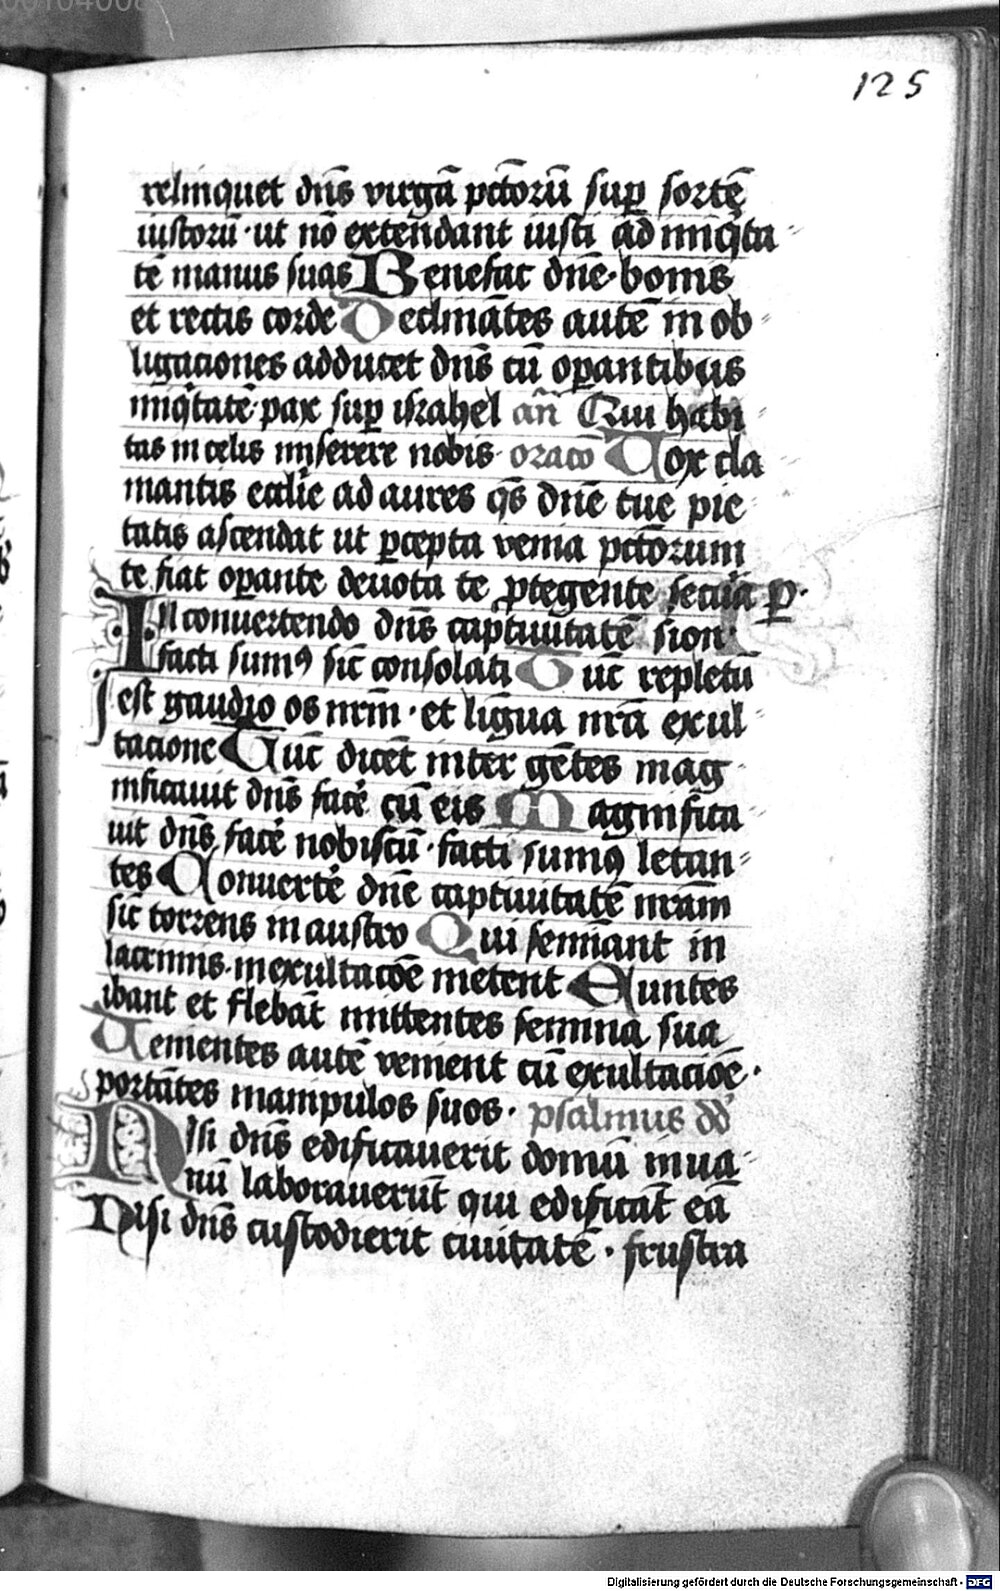 125
relinquet dn̄s virgā pctōrū suꝑ sortē
iustorū · ut nō extendant iusti ad iniq̇ta
tē manus suas Benefac dn̄e · bonis
et rectis corde Declinātes autē in ob
ligaciones adducet dn̄s cū oꝑantibus
iniq̇tatē · pax suꝑ israhel an̄ Qui habi
tas in celis miserere nobis · oracō Vox cla
mantis eccl̄ie ad aures q̄s dn̄e tue pie
tatis ascendat ut ꝑcepta venia pctōrum
te fiat oꝑante deuota te ꝓtegente secura ꝑ ·
In conuertendo dn̄s captiuitatē sion ·
facti sumꝰ sic̄ consolati Tūc repletū
est gaudio os nr̄m · et lingua nr̄a exul
tacione Tūc dicēt inter gētes mag
nificauit dn̄s facē cū eis Magnifica
uit dn̄s facē nobiscū · facti sumꝰ letan
tes Conuertē dn̄e captiuitatē nr̄am
sic̄ torrens in austro Qui semīant in
lacrimis · in exultacōe metent Euntes
ibant et flebāt mittentes semina sua
Uenientes autē venient cū exultaciōe ·
portātes manipulos suos · psalmus dd̄
Nisi dn̄s edificauerit domū in ua
nū laborauerūt qui edificāt eā
Nisi dn̄s custodierit ciuitatē · frustra
Digitalisierung gefördert durch die Deutsche Forschungsgemeinschaft - DFG